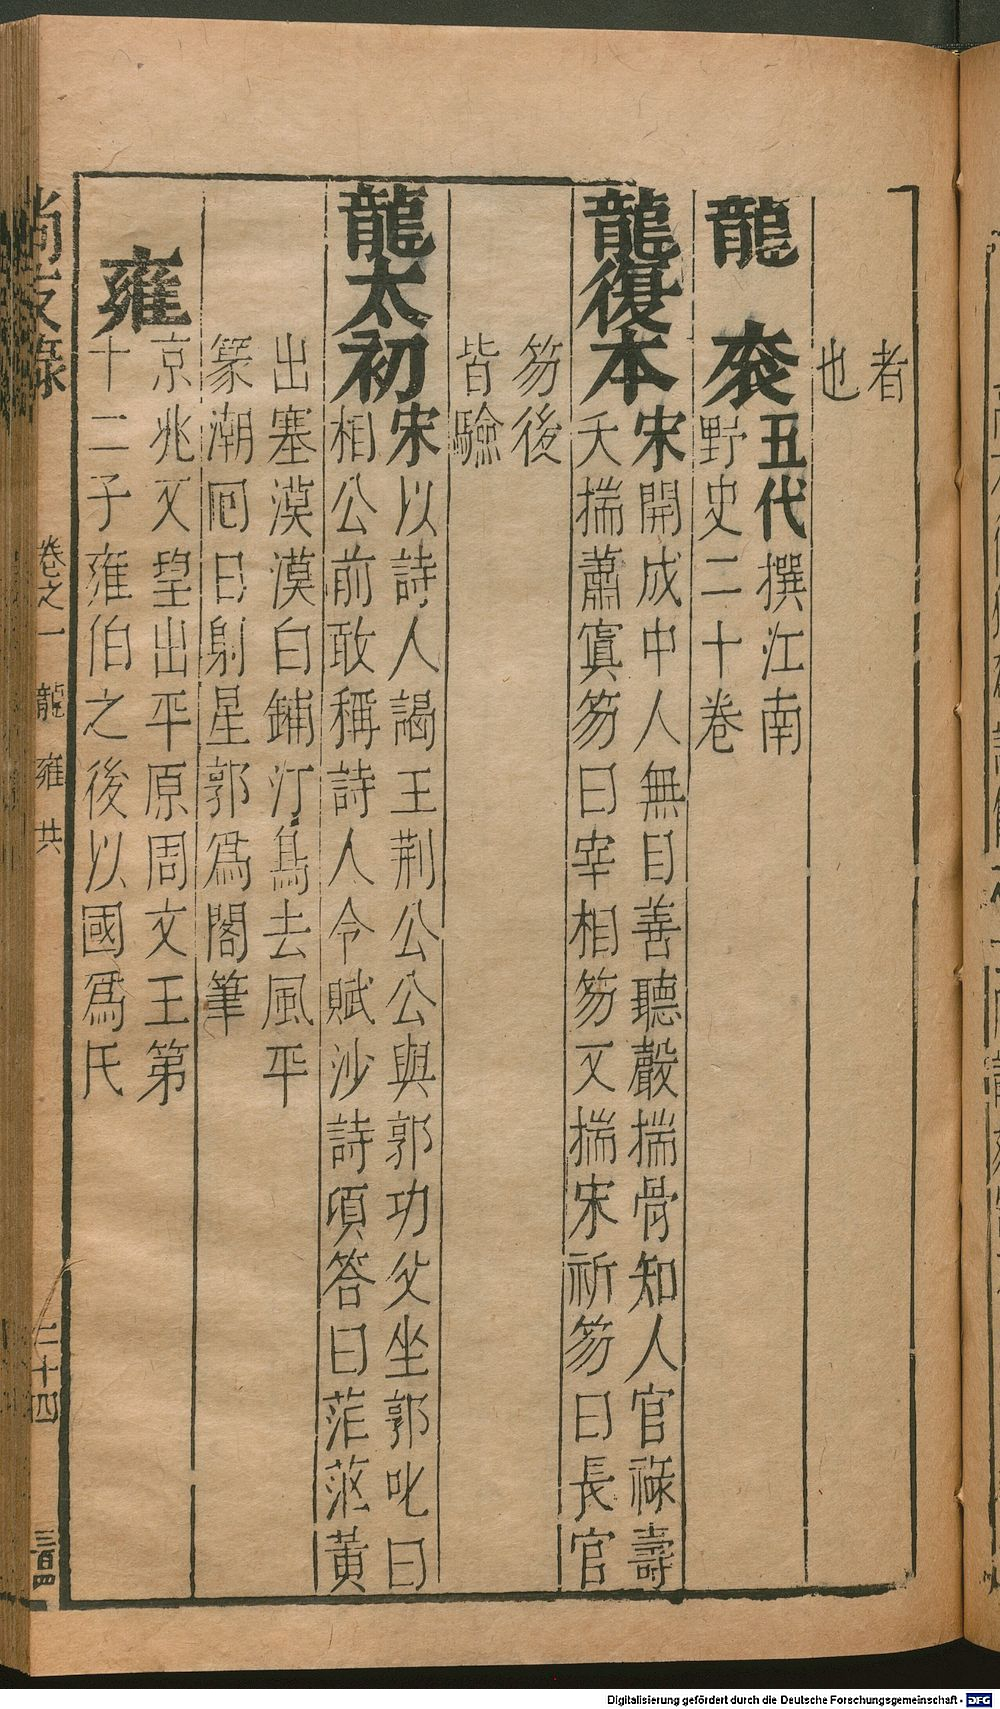 者
也
龍袞五代撰江南
野史二十卷
龍復本宋開成中人無目善聽聲揣骨知人官祿壽
夭揣蕭寘笏曰宰相笏又揣宋祈笏曰長官
笏後
皆驗
龍太初宋以詩人謁王荆公公與郭功父坐郭叱曰
相公前敢稱詩人令賦沙詩項答曰茫茫黃
出塞漠漠白鋪汀鳥去風平
篆潮囘日射星郭爲閣筆
雍京兆又望出平原周文王第
十二子雍伯之後以國爲氏
尚友錄
卷之一 龍 雍 共
二十四
三百四
Digitalisierung gefördert durch die Deutsche Forschungsgemeinschaft - DFG